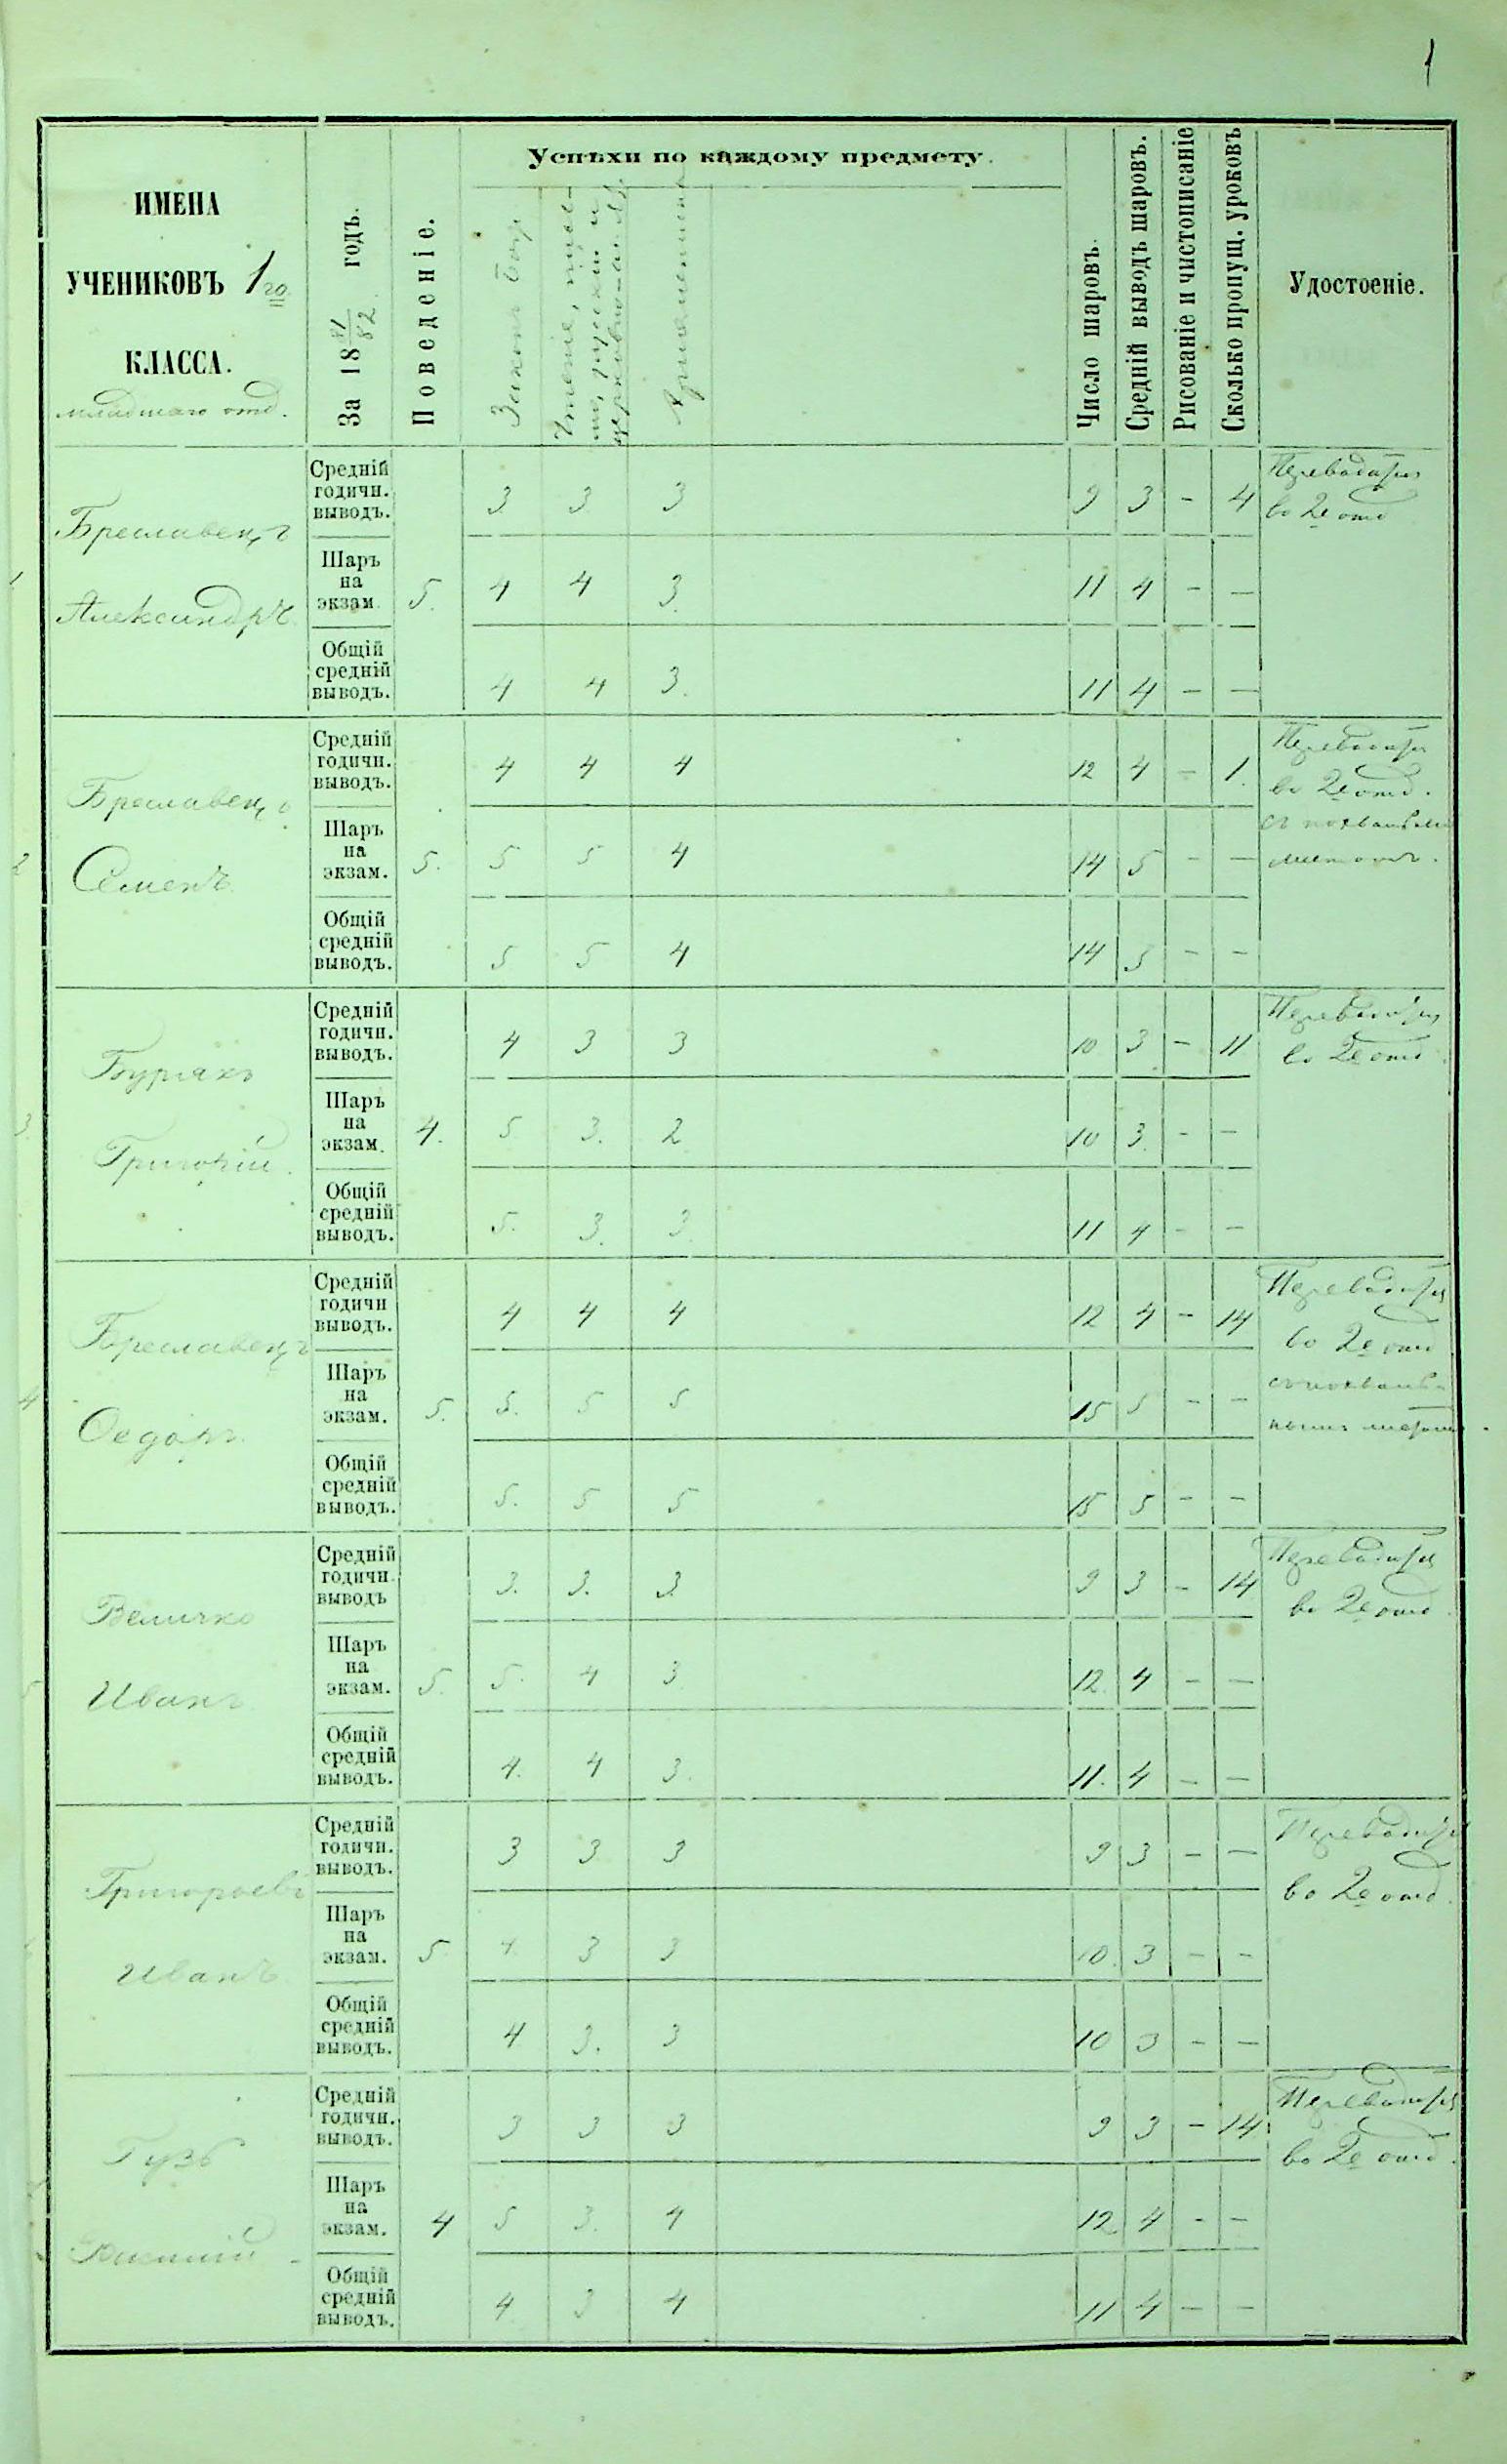 1
ИМЕНА
УЧЕНИКОВЪ 1го
КЛАССА.
младшаго отд.
За 18 81/82 годъ.
Поведеніе.
Успѣхи по каждому предмету.
Законъ Бож
Чтеніе,
Ариѳметика
Число шаровъ.
Средній выводъ шаровъ.
Рисованіе и чистописаніе
Сколько пропущ. уроковъ
Удостоеніе.
1 Бреславецъ Александръ
Средній годичн. выводъ. 3 3 3 9 3 - 4
Шаръ на экзам. 5. 4 4 3. 11 4 - -
Общій средній выводъ. 4 4 3. 11 4 - -
Переводится
во 2е отд
2 Бреславецъ Семенъ
Средній годичн. выводъ. 4 4 4 12 4 - 1.
Шаръ на экзам. 5. 5 5 4 14 5 - -
Общій средній выводъ. 5 5 4 14 5 - -
Переводится
во 2е отд.
съ похвальным
листомъ.
3 Бурякъ Григорій.
Средній годичн. выводъ. 4 3 3 10 3 - 11
Шаръ на экзам. 4. 5 3. 2 10 3. - -
Общій средній выводъ. 5. 3. 3. 11 4 - -
Переводится
во 2е отд
4 Бреславецъ Ѳедоръ
Средній годичн выводъ. 4 4 4 12 4 - 14
Шаръ на экзам. 5. 5. 5 5 15 5 - -
Общій средній выводъ. 5. 5 5 15 5 - -
Переводится
во 2е отд
съ похваль-
нымъ листом.
5 Величко Иванъ
Средній годичн. выводъ 3. 3. 3. 9 3 - 14
Шаръ на экзам. 5. 5. 4 3 12. 4 - -
Общій средній выводъ. 4. 4 3. 11. 4 - -
Переводится
во 2е отд.
Григорьевъ Иванъ
Средній годичн. выводъ. 3 3 3 9 3 - -
Шаръ на экзам. 5 4. 3 3 10. 3 - -
Общій средній выводъ. 4 3. 3 10 3 - -
Переводится
во 2е отд.
Гузь Василій
Средній годичн. выводъ. 3 3 3 9 3 - 14
Шаръ на экзам. 4 5 3. 4 12 4 - -
Общій средній выводъ. 4 3 4 11 4 - -
Переводится
во 2е отд.